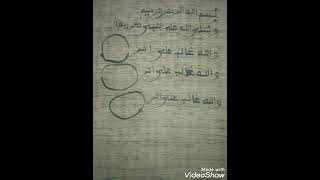 بسم الله الرحمن الرحيم
و صلى الله على النبي كريم
والله غالب على امر
والله غالب على امر
والله غالب على امر
Made with
VideoShow